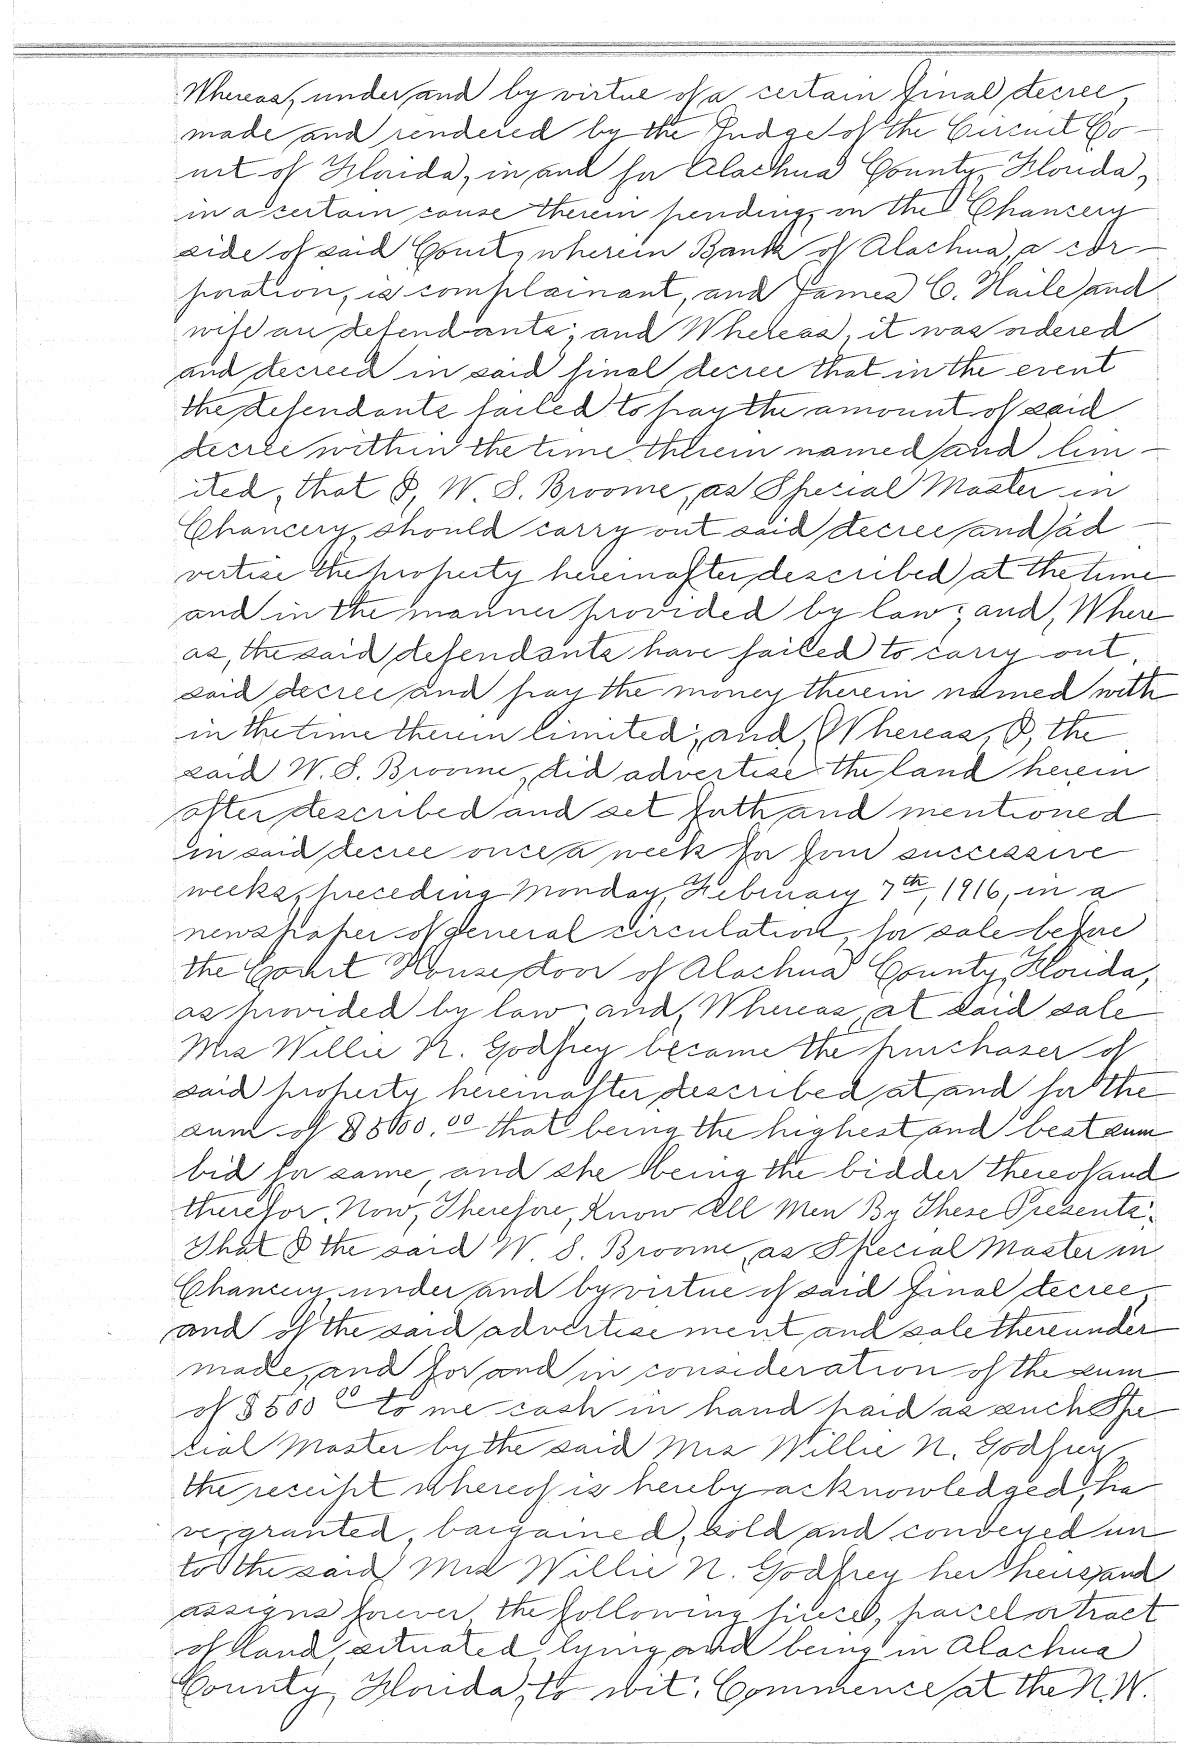 Whereas, under and by virtue of a certain final decree,
made and rendered by the Judge of the Circuit Co-
urt of Florida, in and for Alachua County, Florida,
in a certain cause therein pending, on the Chancery
side of said Court, wherein Bank of Alachua, a cor-
poration, is complainant, and James C. Haile and
wife are defendants; and Whereas, it was ordered
and decreed in said final decree that in the event
the defendants failed to pay the amount of said
decree within the time therein named and lim-
ited, that I, W. S. Broome, as Special Master in
Chancery, should carry out said decree and ad-
vertise the property hereinafter described at the time
and in the manner provided by law; and, Where
as, the said defendants have failed to carry out
said decree and pay the money therein named with
in the time therein limited; and, Whereas, I, the
said W. S. Broome, did advertise the land herein
after described and set forth and mentioned
in said decree once a week for four successive
weeks, preceding Monday, February 7th, 1916, in a
newspaper of general circulation, for sale before
the Court House door of Alachua County, Florida,
as provided by law; and, Whereas, at said sale
Mrs Willie N. Godfrey became the purchaser of
said property hereinafter described at and for the
sum of $500.00 that being the highest and best sum
bid for same, and she being the bidder thereof and
therefor. Now, Therefore, Know All Men By These Presents:
That I the said W. S. Broome, as Special Master in
Chancery, under and by virtue of said final decree,
and of the said advertisement, and sale thereunder
made, and for and in consideration of the sum
of $500 00 to me cash in hand paid as such Spe
cial Master by the said Mrs Willie N. Godfrey,
the receipt whereof is hereby acknowledged, ha
ve, granted, bargained, sold and conveyed un
to the said Mrs Willie N. Godfrey her heirs, and
assigns forever, the following piece, parcel or tract
of land, situated, lying and being in Alachua
County, Florida, to wit: Commence at the N.W.